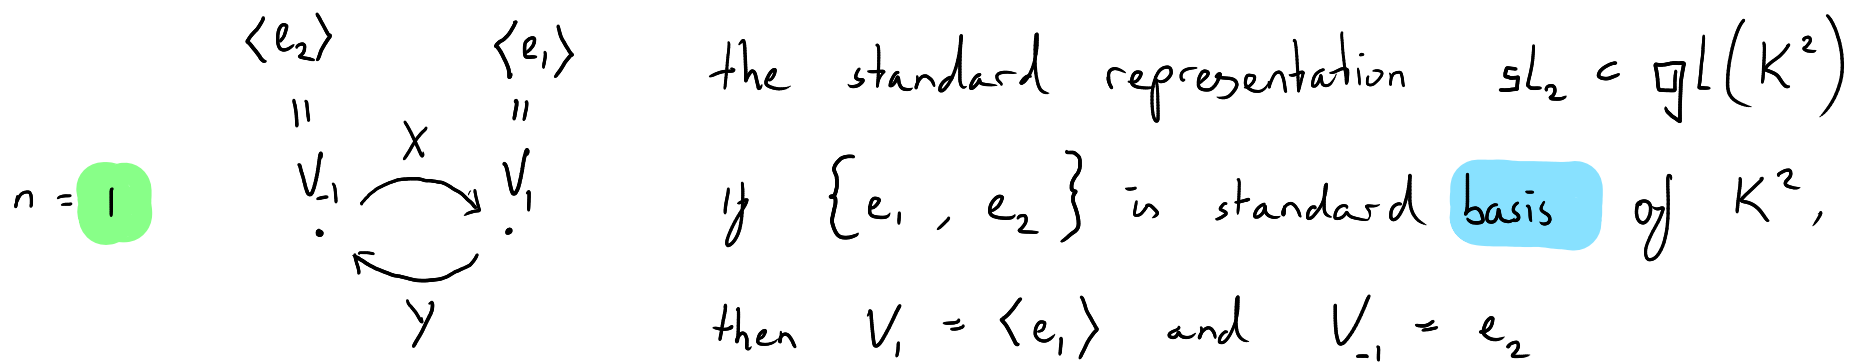 ⟨e₂⟩ ⟨e₁⟩ the standard representation sl₂ ⊂ gl(K²)
= =
n = 1 V₋₁ X V₁ if {e₁, e₂} is standard basis of K²,
Y then V₁ = ⟨e₁⟩ and V₋₁ = e₂